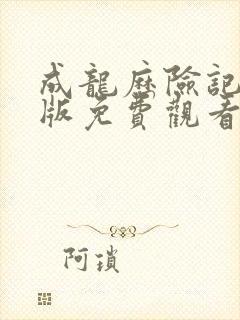 成龍歷險記
版免費觀看
阿瑣